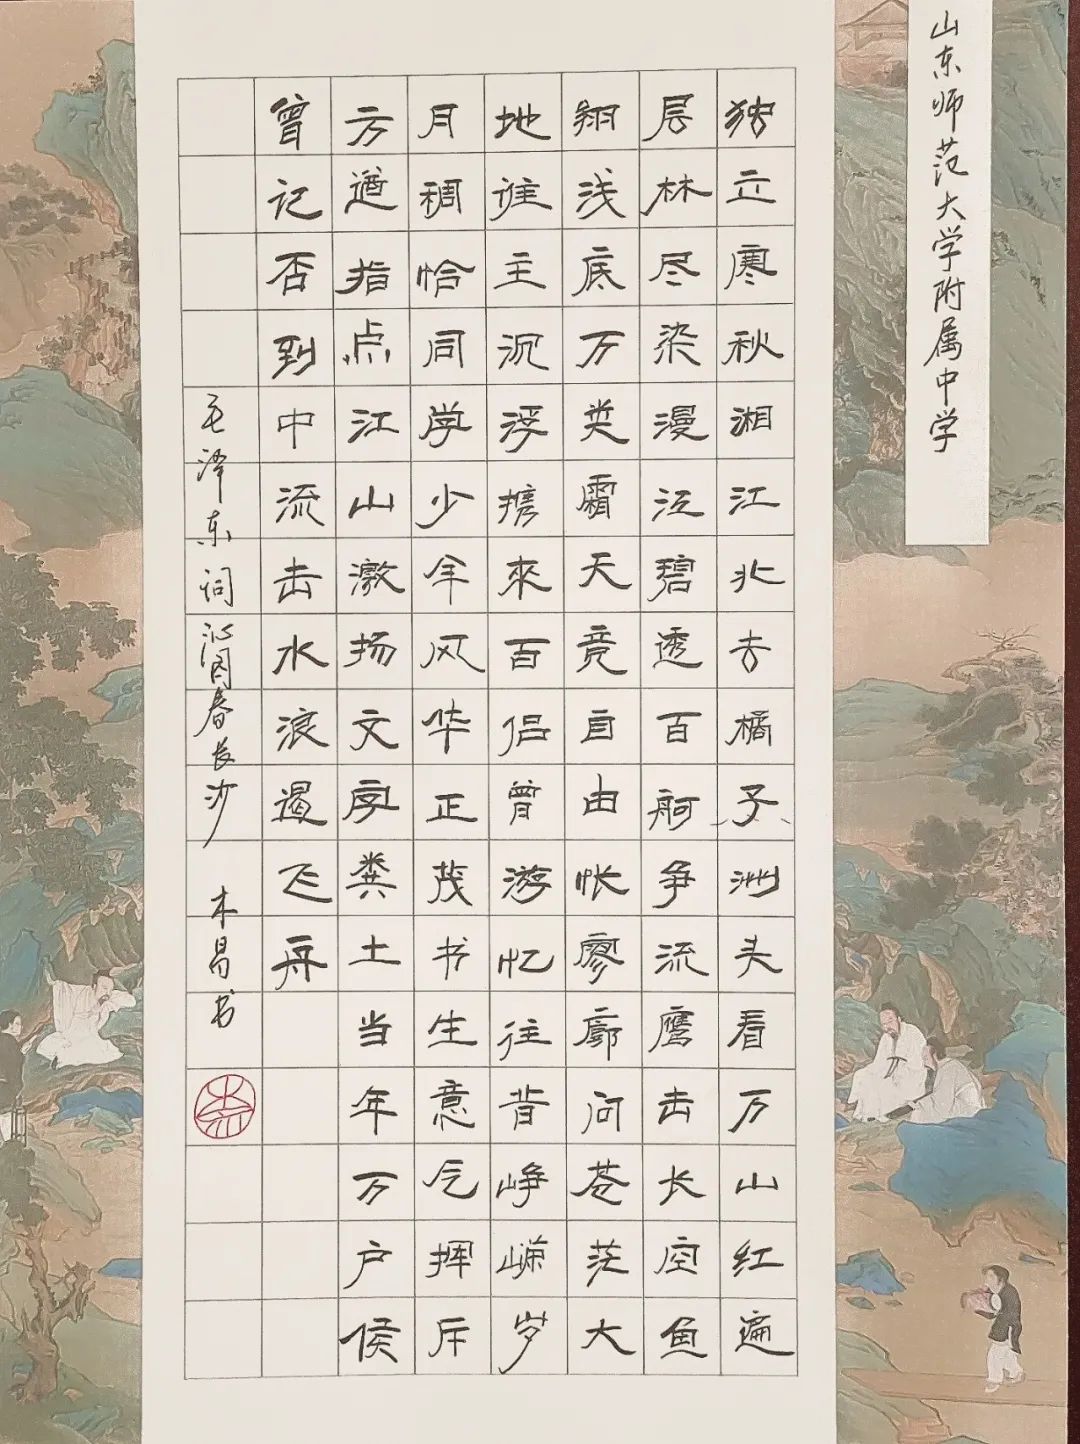 山东师范大学附属中学
独立寒秋湘江北去橘子洲头看万山红遍
层林尽染漫江碧透百舸争流鹰击长空鱼
翔浅底万类霜天竞自由怅廖廓问苍茫大
地谁主沉浮携來百侣曾游忆往昔峥嵘岁
月稠恰同学少年风华正茂书生意气挥斥
方遒指点江山激扬文字粪土当年万户侯
曾记否到中流击水浪遏飞舟
毛泽东词沁园春长沙 木昌书